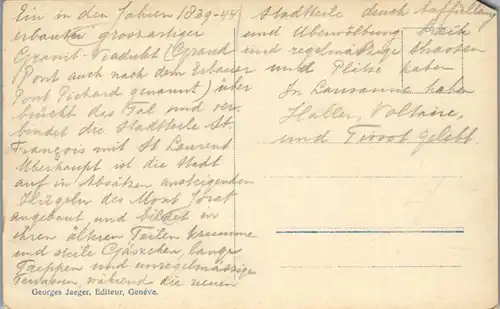 Ein in den Jahren 1839-44
erbauter grossartiger
Granit-Viadukt (Grand
Pont auch nach dem Erbauer
Pont Pichard genannt) über
brückt das Tal und ver
bindet die Stadtteile St.
François mit St Laurent
Überhaupt ist die Stadt
auf in Absätzen ansteigenden
Hügeln des Mont Jorat
angebaut, und bildet in
ihren älteren Teilen krumme
und steile Gässchen, lange
Treppen und unregelmässige
Terrassen, während die neuen
Georges Jaeger, Editeur, Genève.
Stadtteile durch Auffüllung
und Überwölbung breite
und regelmässige Strassen
und Plätze haben
In Lausanne haben
Haller, Voltaire,
und Tissot gelebt.